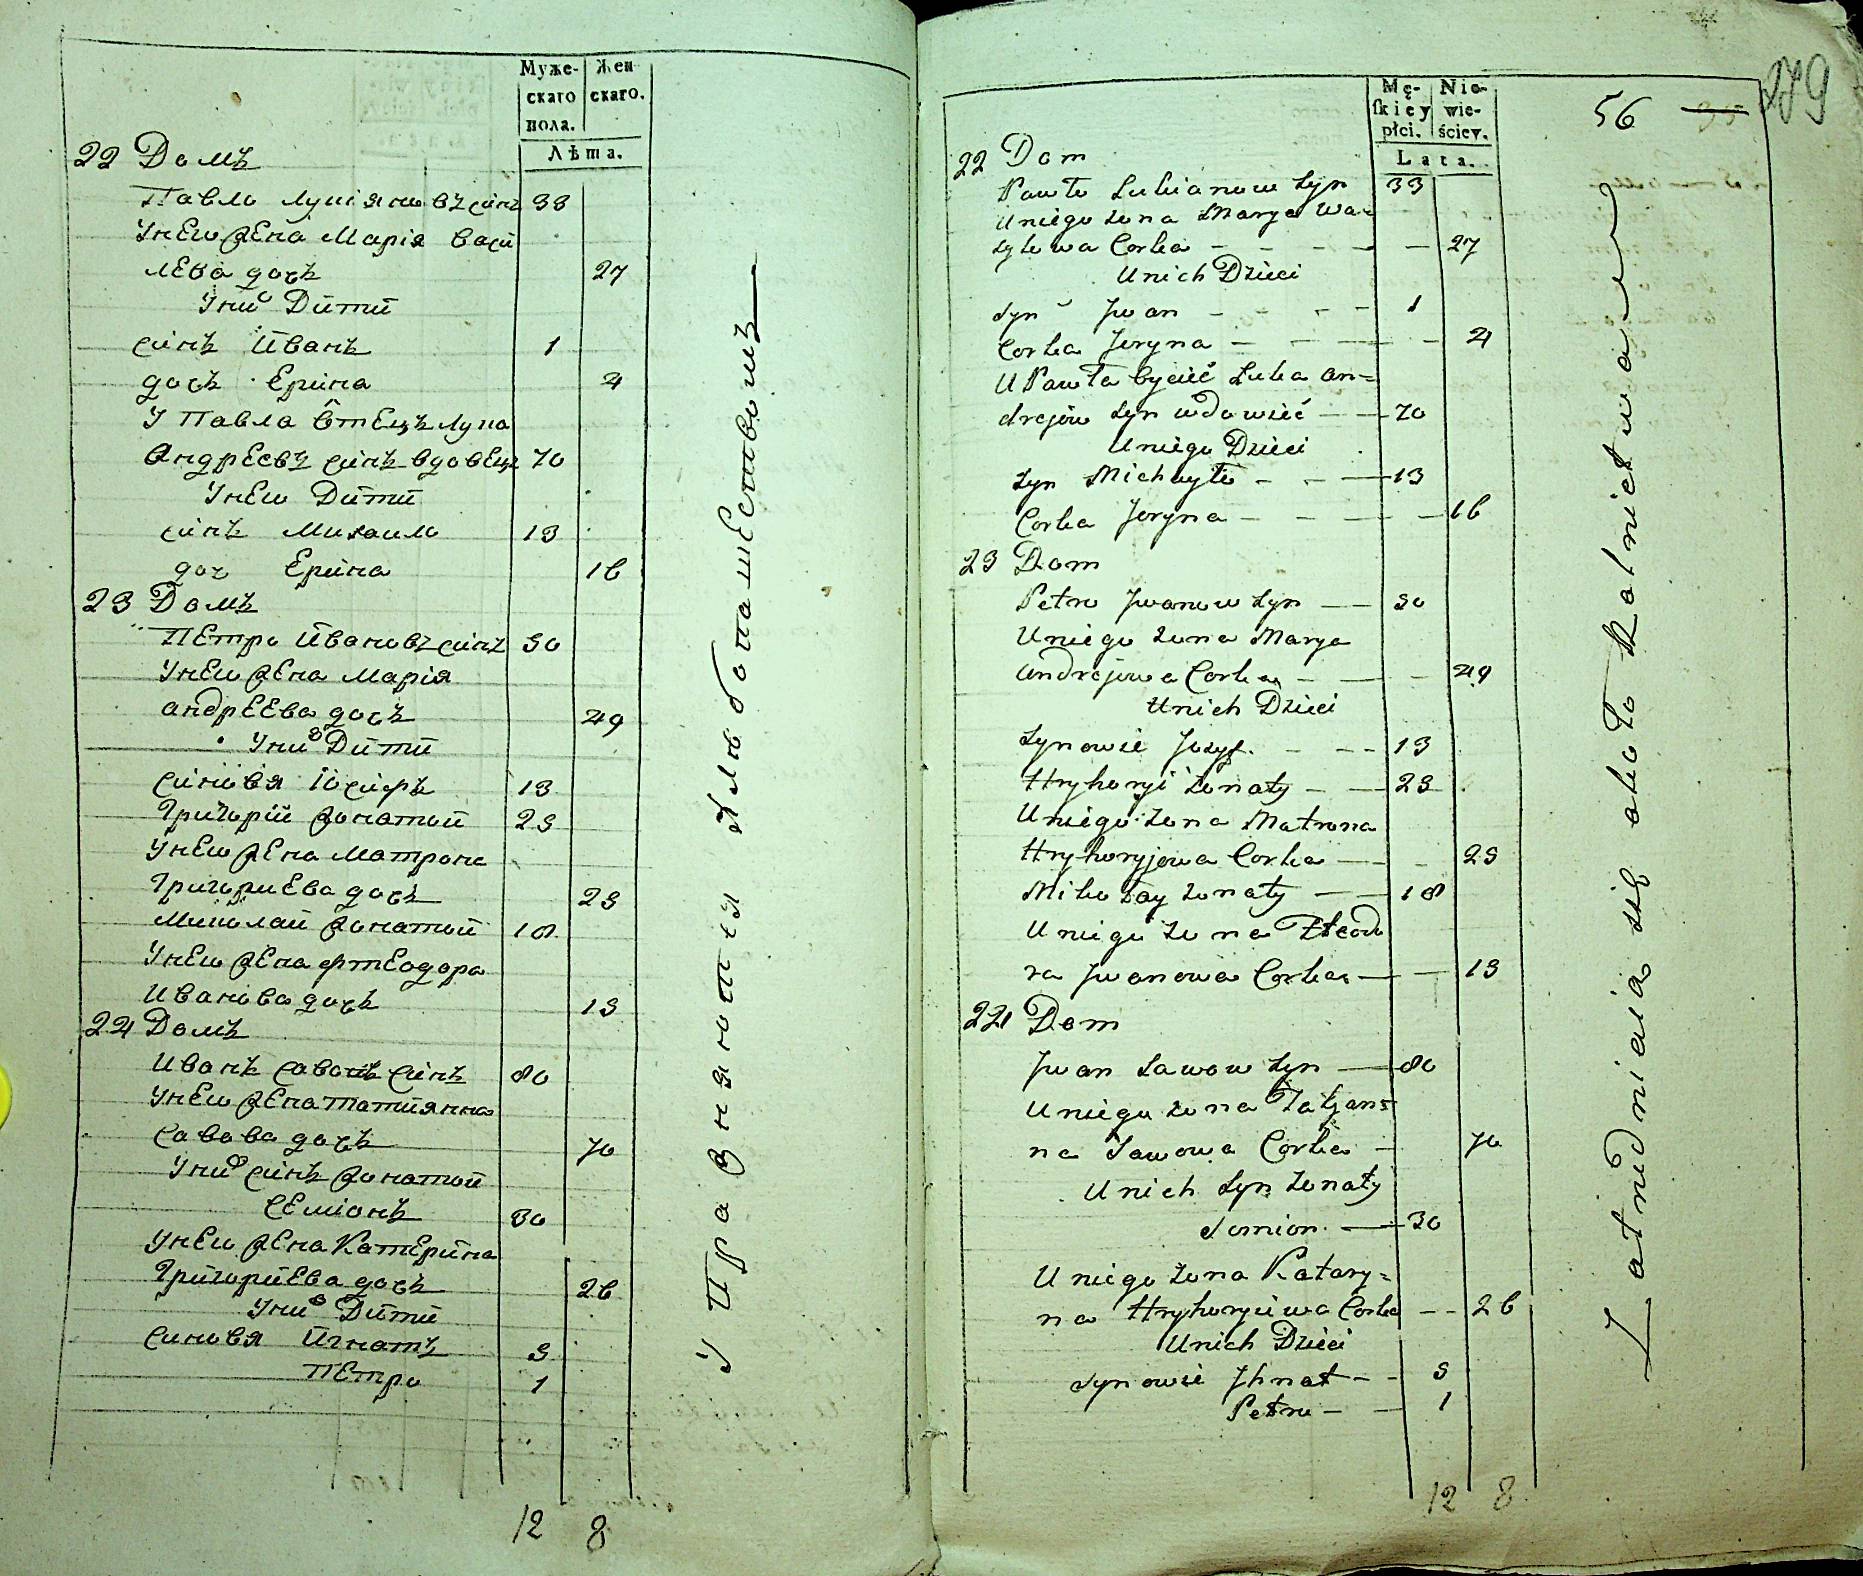 Муже-
скаго
пола.
Жен
скаго.
Лѣта.
22 Домъ
Павло Лукіяновъ синъ 33
Унего жена Марія васи
лева дочь 27
Уних Дити
синъ Иванъ 1
дочь Ерина 4
У Павла отецъ Лука
Андреевъ синъ вдовецъ 70
Унего Дити
синъ Михаило 13
доч Ерина 16
23 Домъ
Петро Ивановъ синъ 50
Унего жена Марія
андреева дочь 49
Уних Дити
синовя Іосифъ 13
Григорій жонатий 23
Унего жена Матрона
Григориева дочь 23
Миколай жонатий 18
Унего жена фтеодора
Иванова дочь 19
24 Домъ
Иванъ савовъ синъ 80
Унего жена Татиянна
савова дочь 70
Уних синъ жонатий
Семіонъ 30
Унего жена Катерина
Григориева дочь 26
Уних Дити
синовя Игнатъ 3
Петро 1
12 8
Mę-
skiey
płci.
Nie-
wie-
ściey.
Lata.
56
279
22 Dom
Pawło Lukianow syn 33
Uniego żona Marya Wa-
sylowa Corka 27
Unich Dzieci
syn Jwan 1
Corka Jeryna 4
U Pawła oyciec Luka An=
drejów syn wdowiec 70
Uniego Dzieci
syn Michayło 13
Corka Jeryna 16
23 Dom
Petro Jwanow syn 50
Uniego żona Marya
Andrejowa Corka 49
Unich Dzieci
synowie Jozyf 13
Hryhoryi żonaty 23
Uniego żona Matrona
Hryhoryjowa Corka 23
Mikołay żonaty 18
Uniego żona Fteodo
ra Jwanowa Corka 19
24 Dom
Jwan Sawow syn 80
Uniego żona Tatjan=
na Sawowa Corka 70
Unich syn żonaty
Somion 30
Uniego żona Katary=
na Hryhoryiwa Corka 26
Unich Dzieci
synowie Jhnat 3
Petro 1
12 8